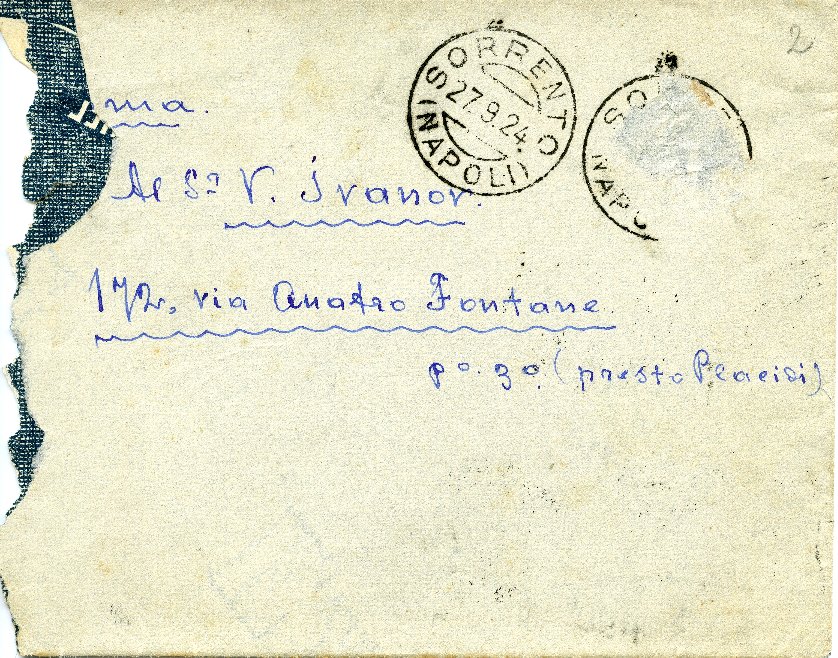 2
SORRENTO
27.9.24.
(NAPOLI)
SO
NAPO
ma.
Al Sr V. Ivanov.
172, via Quatro Fontane.
po. 3o (presto Placidi)